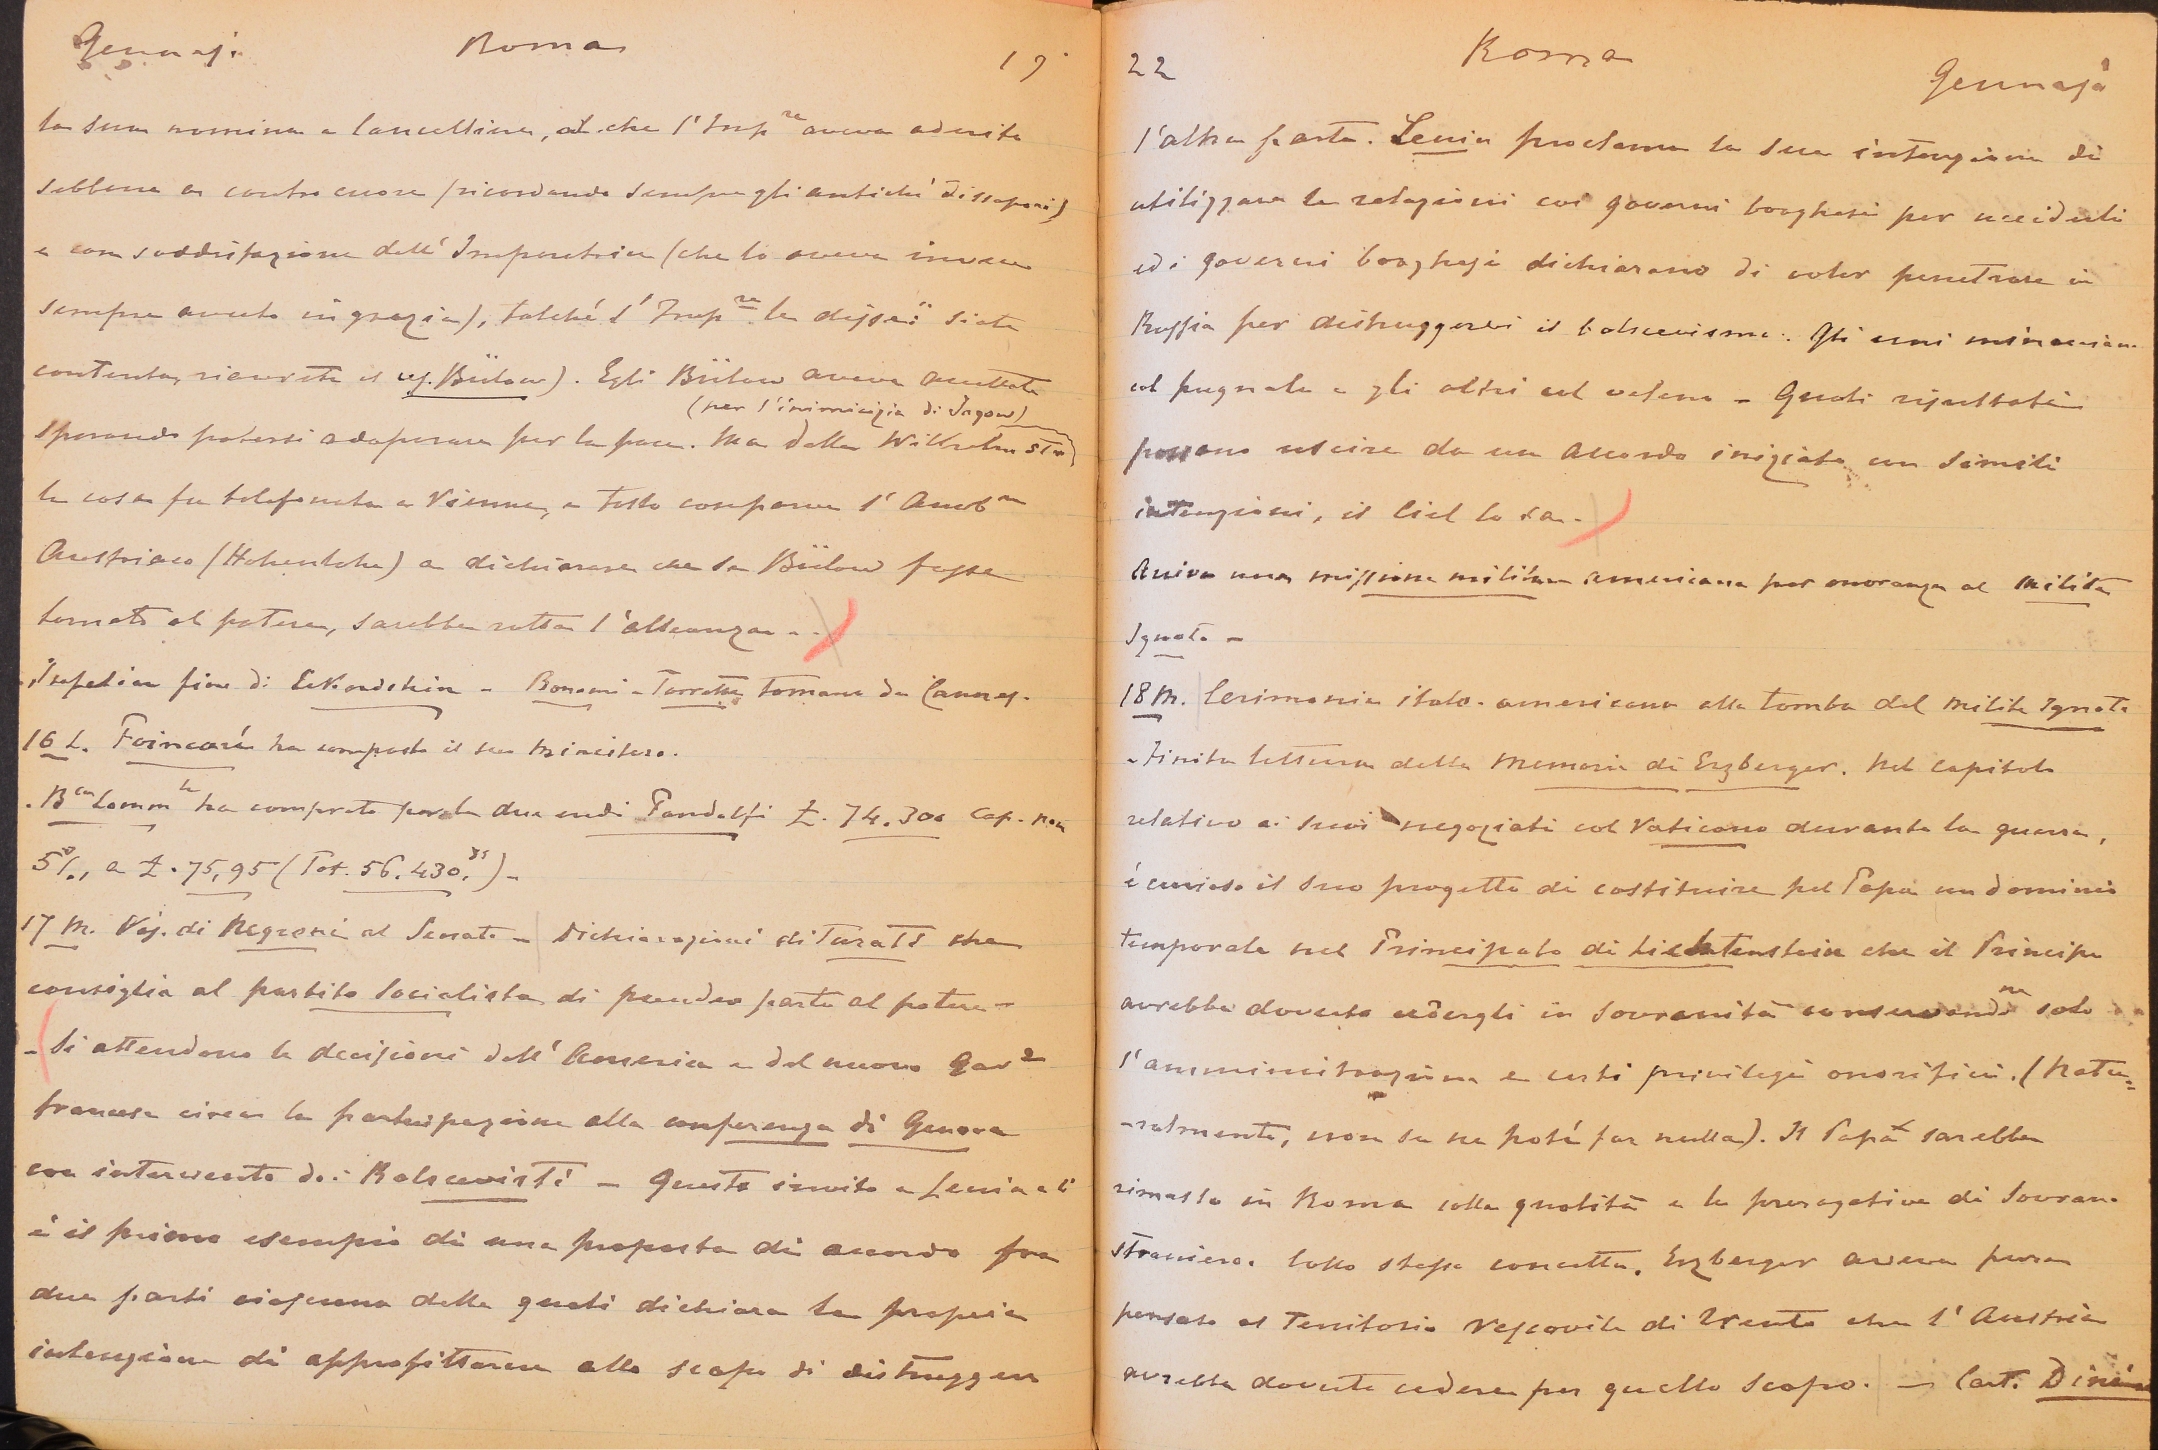 Gennajo Roma 19
la sua nomina a Cancelliere, al che l'Imp.re aveva aderito
sebbene a contro cuore (ricordando sempre gli antichi dissapori)
e con soddisfazione dell'Imperatrice (che lo aveva invece
sempre avuto in grazia), talché l'Imp.re le disse: siate
contenta, riavrete il Bülow). Egli Bülow aveva accettato
(per l'inimicizia di Jagow)
sperando potersi adoperare per la pace. Ma dalla Wilhelmstr
la cosa fu telefonata a Vienna, e tosto comparve l'Amb.re
Austriaco (Hohenlohe) a dichiarare che se Bülow fosse
tornato al potere, sarebbe rotta l'alleanza - -
fine di Eckardstein - Bonomi e Torretta tornano da Cannes.
16 L. Poincaré ha composto il suo Ministero.
. B.ca Comm.le ha comprato per le due eredi Pandolfi £. 74.300 Cap. Non
5%, a £. 75,95 (Tot. 56.430.85) -
17 M. Vis. di Negroni al Senato - Dichiarazioni di Turati che
consiglia al partito Socialista di prender parte al potere -
- Si attendono le decisioni dell'America e del nuovo Gov.o
francese circa la partecipazione alla conferenza di Genova
con intervento dei Bolscevisti - Questo invito a Lenin e Ci
è il primo esempio di una proposta di accordo fra
due parti ciascuna delle quali dichiara la propria
intenzione di approfittarne allo scopo di distruggere
22 Roma Gennajo
l'altra parte. Lenin proclama la sua intenzione di
utilizzare le relazioni coi governi borghesi per ucciderli
ed i governi borghesi dichiarano di voler penetrare in
Russia per distruggervi il bolscevismo. Gli uni minacciano
col pugnale e gli altri col veleno - Quali risultati
possano uscire da un accordo iniziato con simili
intenzioni, il Ciel lo sa -
Arriva una missione militare americana per onoranza al Milite
Ignoto -
18 M. Cerimonia italo-americana alla tomba del Milite Ignoto
- Finita lettura delle Memorie di Erzberger. Nel capitolo
relativo ai suoi negoziati col Vaticano durante la guerra,
è curioso il suo progetto di costituire pel Papa un dominio
temporale nel Principato di Liechtenstein che il Principe
avrebbe dovuto cedergli in Sovranità conservandone solo
l'amministrazione e certi privilegi onorifici. (Natu=
-ralmente, non se ne poté far nulla). Il Papa sarebbe
rimasto in Roma colla qualità e le prerogative di Sovrano
straniero. Collo stesso concetto, Erzberger aveva pure
pensato al Territorio Vescovile di Trento che l'Austria
avrebbe dovuto cedere per quello scopo. - Cart.